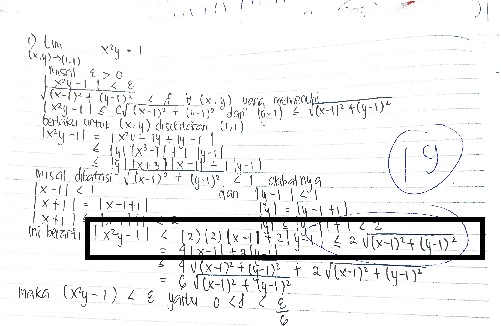 1) lim x²y = 1
(x,y)→(1,1)
Misal ε > 0
|x²y - 1| < ε
√(x-1)² + (y-1)² < δ ∀ (x,y) yang memenuhi
|x²y - 1| ≤ 6√(x-1)² + (y-1)² dari (y-1) ≤ √(x-1)² + (y-1)²
berlaku untuk (x,y) disekitaran (1,1)
|x²y - 1| = |x²y - y + y - 1|
≤ |y| |x² - 1| + |y - 1|
≤ |y| |x+1| |x-1| + |y-1|
Misal dibatasi √(x-1)² + (y-1)² < 1 akibatnya
|x-1| < 1 dan |y-1| < 1
|x+1| = |x-1+1| |y| = |y-1+1|
|x+1| ≤ < 2 |y| ≤ |y-1| + 1 < 2
ini berarti |x²y-1| < (2)(2)|x-1|+2|y-1| ≤ 2√(x-1)²+(y-1)²
= 4|x-1| + 2|y-1|
≤ 4√(x-1)² + (y-1)² + 2√(x-1)² + (y-1)²
= 6√(x-1)² + (y-1)²
maka (x²y-1) < ε yaitu 0 < δ < ε/6
19